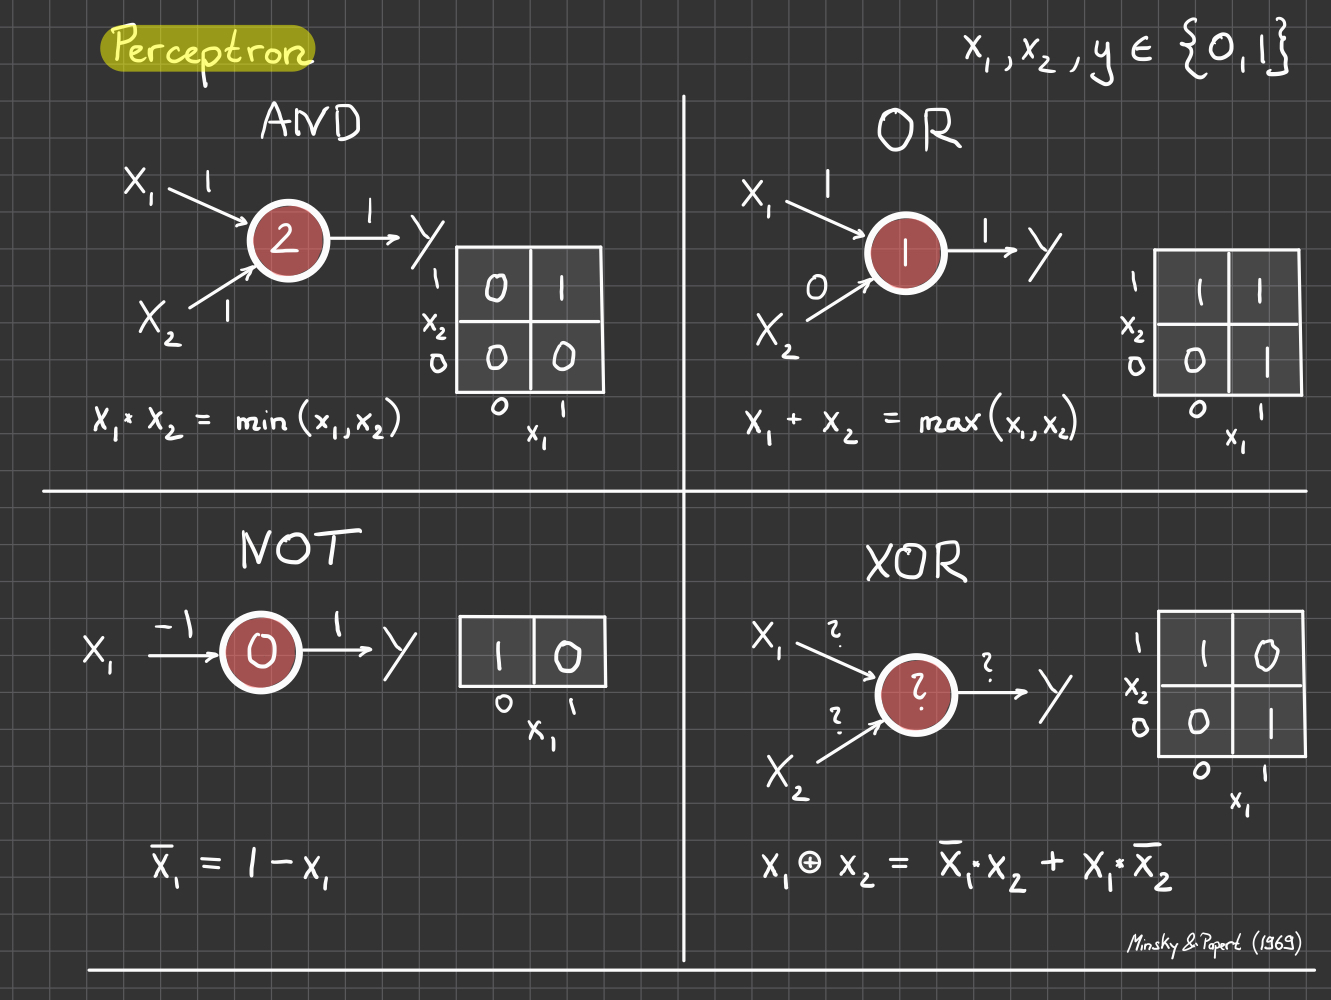 Perceptron
x₁, x₂, y ∈ {0,1}
AND
X₁ 1
2
1 Y
X₂ 1
1 0 1
x₂
0 0 0
0 1
x₁
x₁ * x₂ = min(x₁,x₂)
OR
X₁ 1
1
1 Y
X₂ 0
1 1 1
x₂
0 0 1
0 1
x₁
x₁ + x₂ = max(x₁,x₂)
NOT
X₁ -1 0 1 Y
1 0
0 1
x₁
x̅₁ = 1 - x₁
XOR
X₁ ?
?
? Y
X₂ ?
1 1 0
x₂
0 0 1
0 1
x₁
x₁ ⊕ x₂ = x̅₁ * x₂ + x₁ * x̅₂
Minsky & Papert (1969)